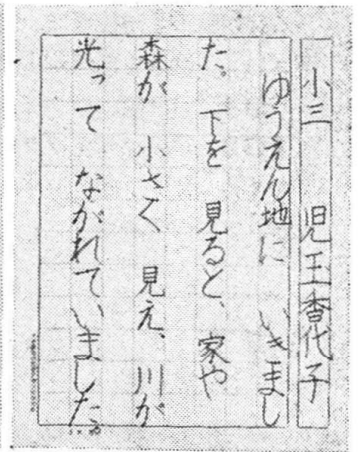 小三 児玉香代子
ゆうえん地に いきまし
た。下を 見ると、家や
森が 小さく 見え、川が
光って ながれていました。